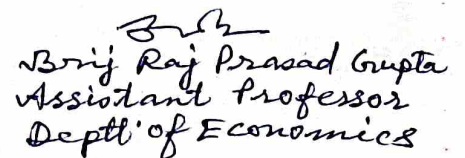 Brij Raj Prasad Gupta
Assistant Professor
Deptt. of Economics